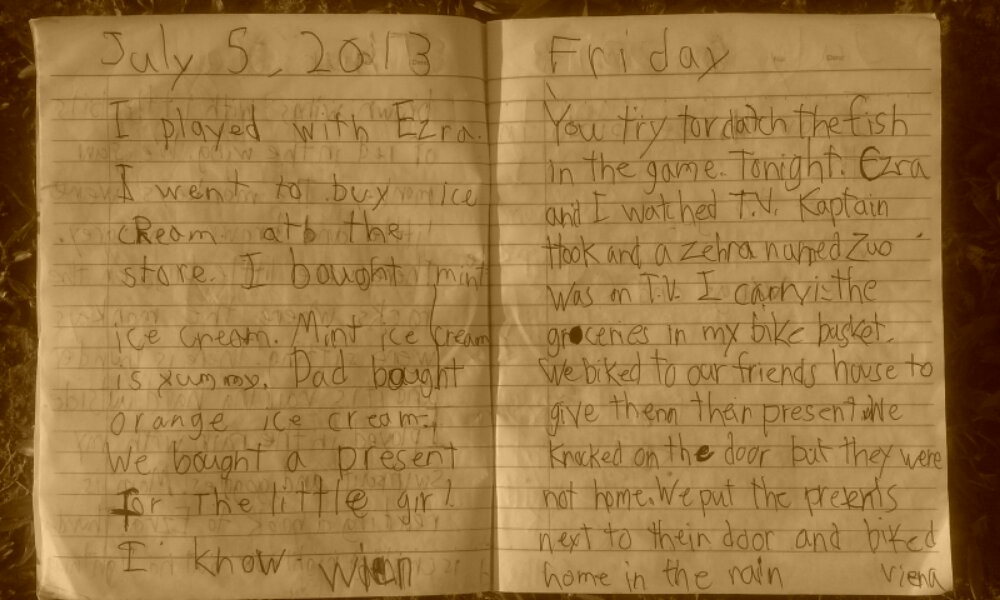 July 5, 2013
I played with Ezra.
I went to buy ice
cream att the
store. I bought mint
ice cream. Mint ice cream
is yummy. Dad bought
orange ice cream.
We bought a present
for The little girl
I know
Friday
You try to catch the fish
in the game. Tonight. Ezra
and I watched T.V. Kaptain
Hook and a zebra named Zuo
was on T.V. I carry the
groceries in my bike basket.
We biked to our friends house to
give them their present. We
knocked on the door but they were
not home. We put the presents
next to their door and biked
home in the rain Viena